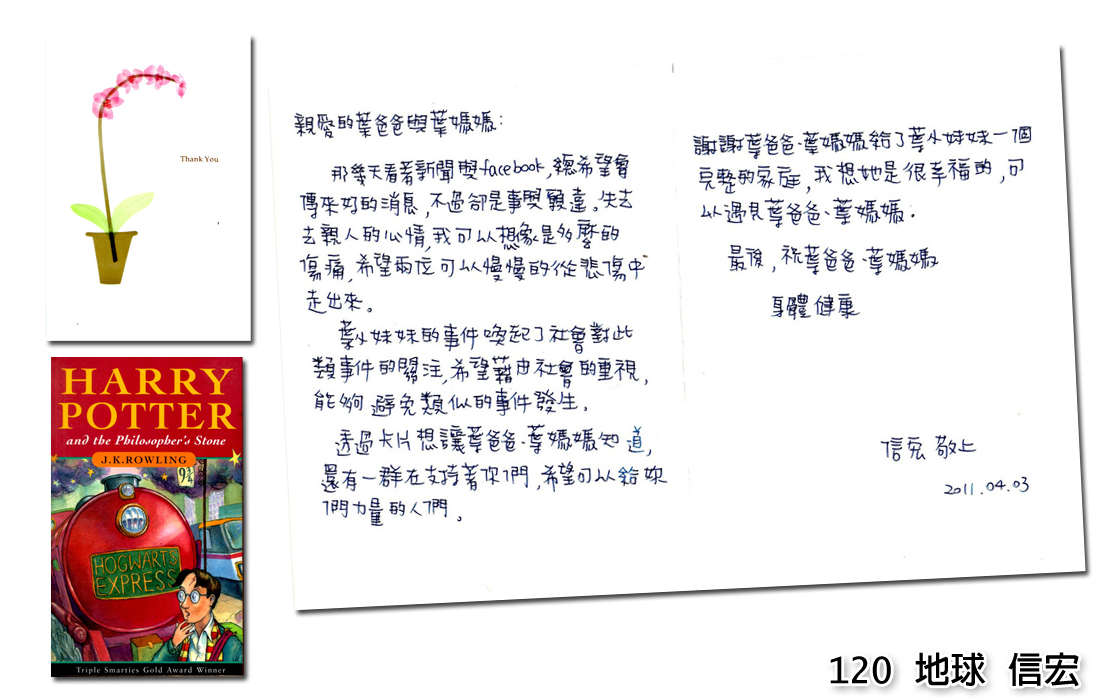 Thank You
HARRY
POTTER
and the Philosopher's Stone
J.K.ROWLING
9¾
HOGWARTS
EXPRESS
Triple Smarties Gold Award Winner
親愛的葉爸爸與葉媽媽:
那幾天看著新聞與facebook,總希望會
傳來好的消息,不過卻是事與願違。失去
去親人的心情,我可以想像是多麼的
傷痛,希望兩位可以慢慢的從悲傷中
走出來。
葉小妹妹的事件喚起了社會對此
類事件的關注,希望藉由社會的重視,
能夠避免類似的事件發生。
透過卡片想讓葉爸爸、葉媽媽知道,
還有一群在支持著你們,希望可以給妳
們力量的人們。
謝謝葉爸爸、葉媽媽給了葉小妹妹一個
完整的家庭,我想她是很幸福的,可
以遇見葉爸爸、葉媽媽。
最後,祝葉爸爸、葉媽媽
身體健康
信宏 敬上
2011.04.03
120 地球 信宏